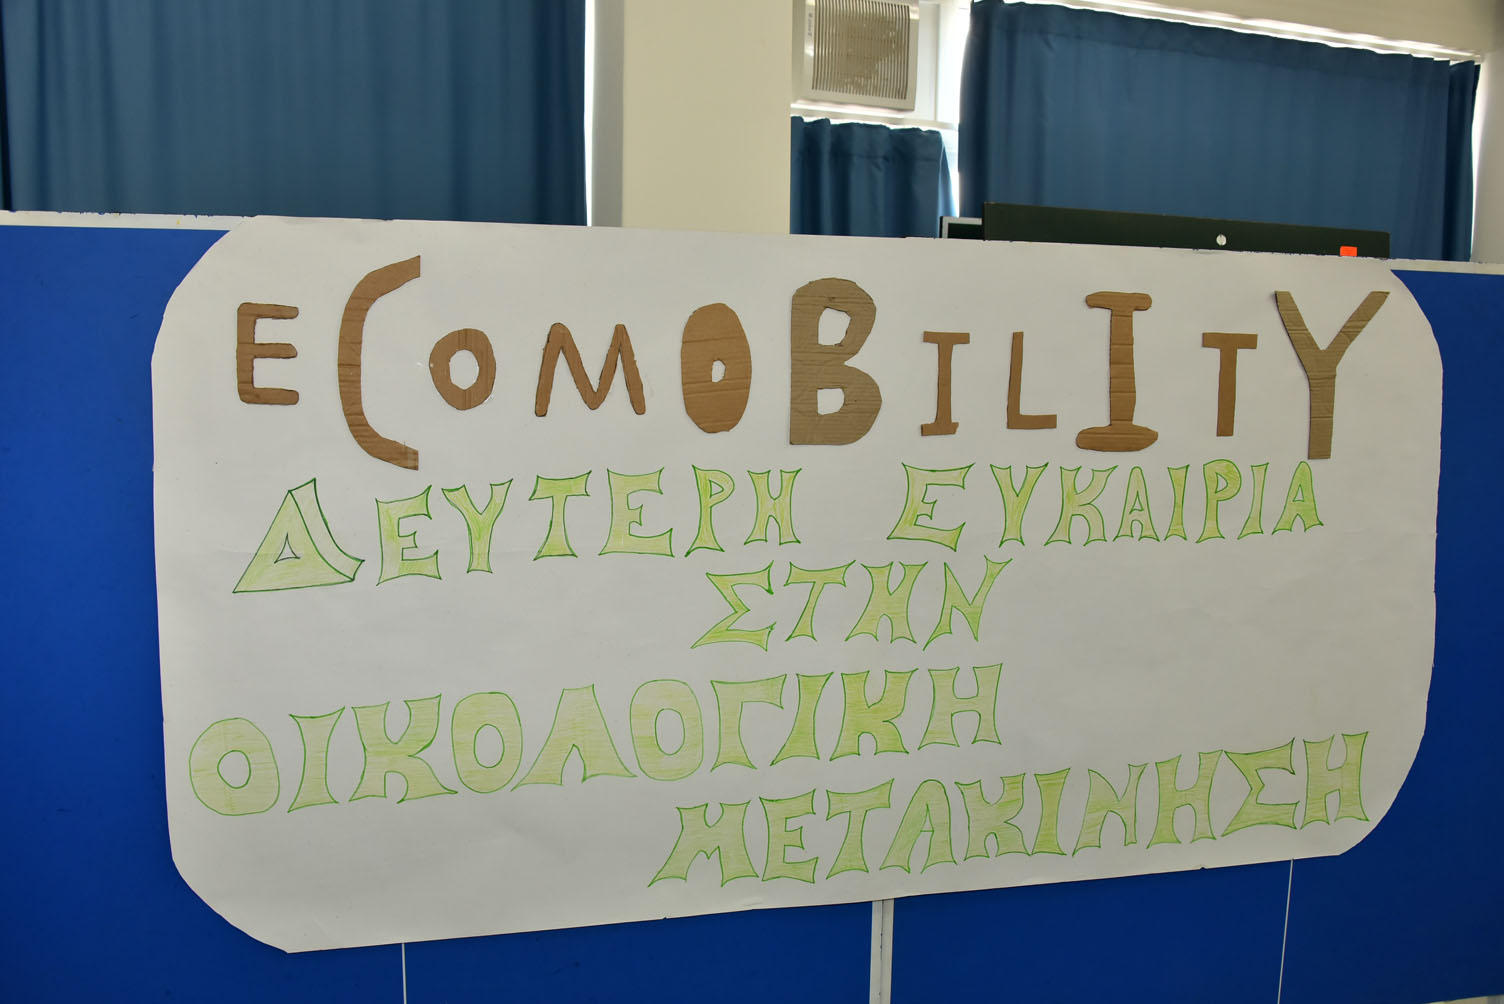 ECOMOBILITY
ΔΕΥΤΕΡΗ ΕΥΚΑΙΡΙΑ
ΣΤΗΝ
ΟΙΚΟΛΟΓΙΚΗ
ΜΕΤΑΚΙΝΗΣΗ